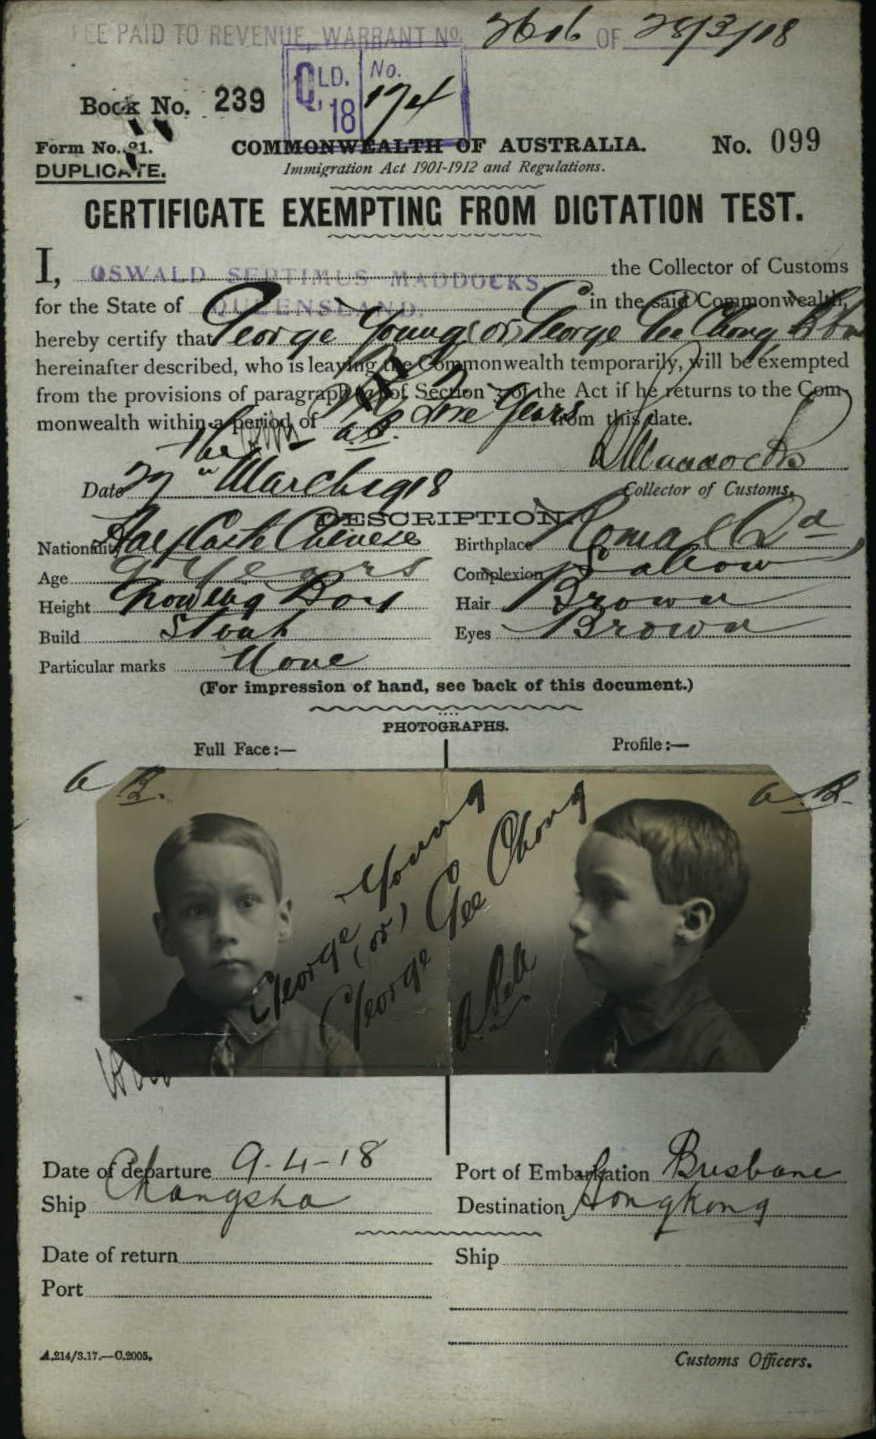 FEE PAID TO REVENUE, WARRANT No. 2606 OF 28/3/18
QLD. No.
'18 174
Book No. 239
Form No. 21. COMMONWEALTH OF AUSTRALIA. No. 099
DUPLICATE. Immigration Act 1901-1912 and Regulations.
CERTIFICATE EXEMPTING FROM DICTATION TEST.
I, OSWALD SEPTIMUS MADDOCKS, the Collector of Customs
for the State of QUEENSLAND. in the said Commonwealth,
hereby certify that George Young (or) George Gee Chong
hereinafter described, who is leaving the Commonwealth temporarily, will be exempted
from the provisions of paragraph (a) of Section 3 of the Act if he returns to the Com-
monwealth within a period of Years from this date.
Date 27th March 1918 Collector of Customs.
DESCRIPTION.
Nationality Half Caste Chinese Birthplace Roma Qld
Age 9 Years Complexion Sallow
Height Growing Boy Hair Brown
Build Stout Eyes Brown
Particular marks None
(For impression of hand, see back of this document.)
PHOTOGRAPHS.
Full Face:— Profile:—
George Young
(or)
George Gee Chong
A Bell
Date of departure 9-4-18 Port of Embarkation Brisbane
Ship Changsha Destination Hongkong
Date of return Ship
Port
A.214/3.17.—C.2005. Customs Officers.